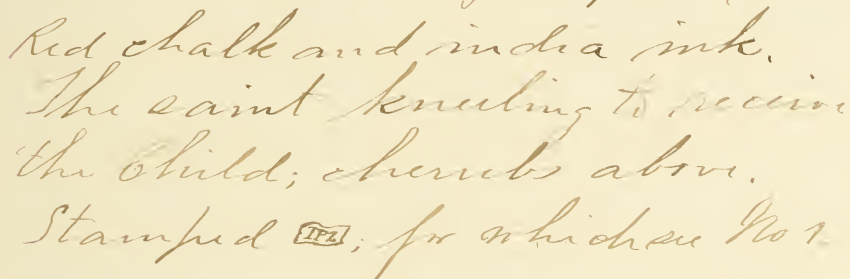 Red chalk and india ink.
The saint kneeling to receive
the child; cherubs above.
Stamped IPZ; for which see No 1